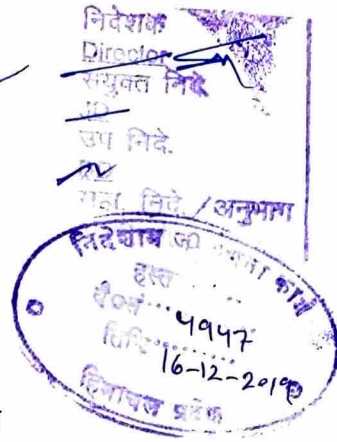 निदेशक
Director
संयुक्त निदे.
JD
उप निदे.
सहा. निदे./अनुभाग
निदेशालय जनगणना कार्य
हस्त
4947
तिथि 16-12-2019
हिमाचल प्रदेश